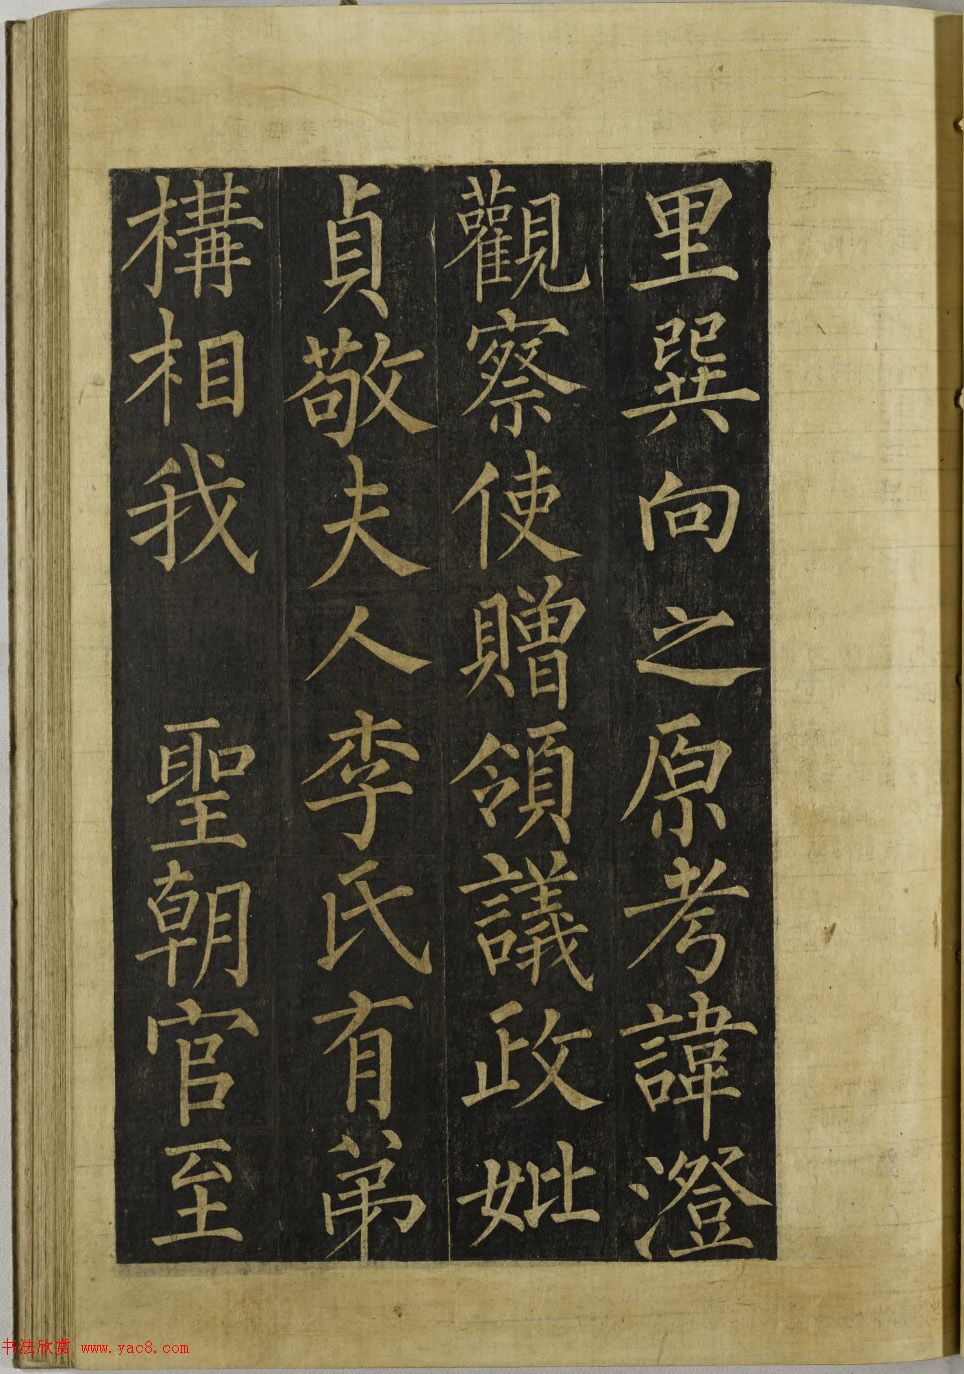 里巽向之原考諱澄
觀察使贈領議政妣
貞敬夫人李氏有弟
構相我 聖朝官至
书法欣赏 www.yac8.com